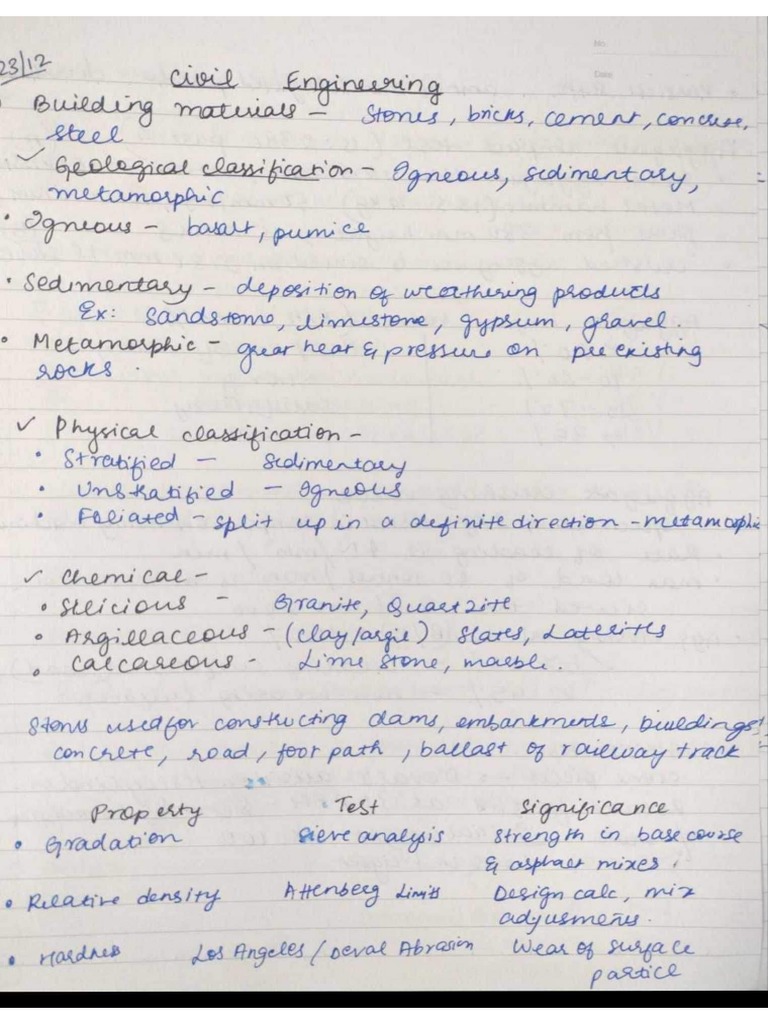 No.
Date
23/12
Civil Engineering
Building materials - Stones, bricks, cement, concrete,
steel
✓ Geological classification - Igneous, Sedimentary,
metamorphic
• Igneous - basalt, pumice
• Sedimentary - deposition of weathering products
Ex: Sandstone, limestone, gypsum, gravel.
• Metamorphic - great heat & pressure on pre existing
rocks.
✓ Physical classification -
• Stratified - Sedimentary
• Unstratified - Igneous
• Foliated - split up in a definite direction - metamorphic
✓ Chemical -
• Silicious - Granite, Quartzite
• Argillaceous - (clay/argil) Slates, Laterites
• Calcareous - Lime stone, marble.
Stones used for constructing dams, embankments, buildings,
concrete, road, foot path, ballast of railway track
Property Test Significance
• Gradation Sieve analysis Strength in base course
& asphalt mixes.
• Relative density Attenberg Limits Design calc, mix
adjusments.
• Hardness Los Angeles / Deval Abrasion Wear of surface
partice